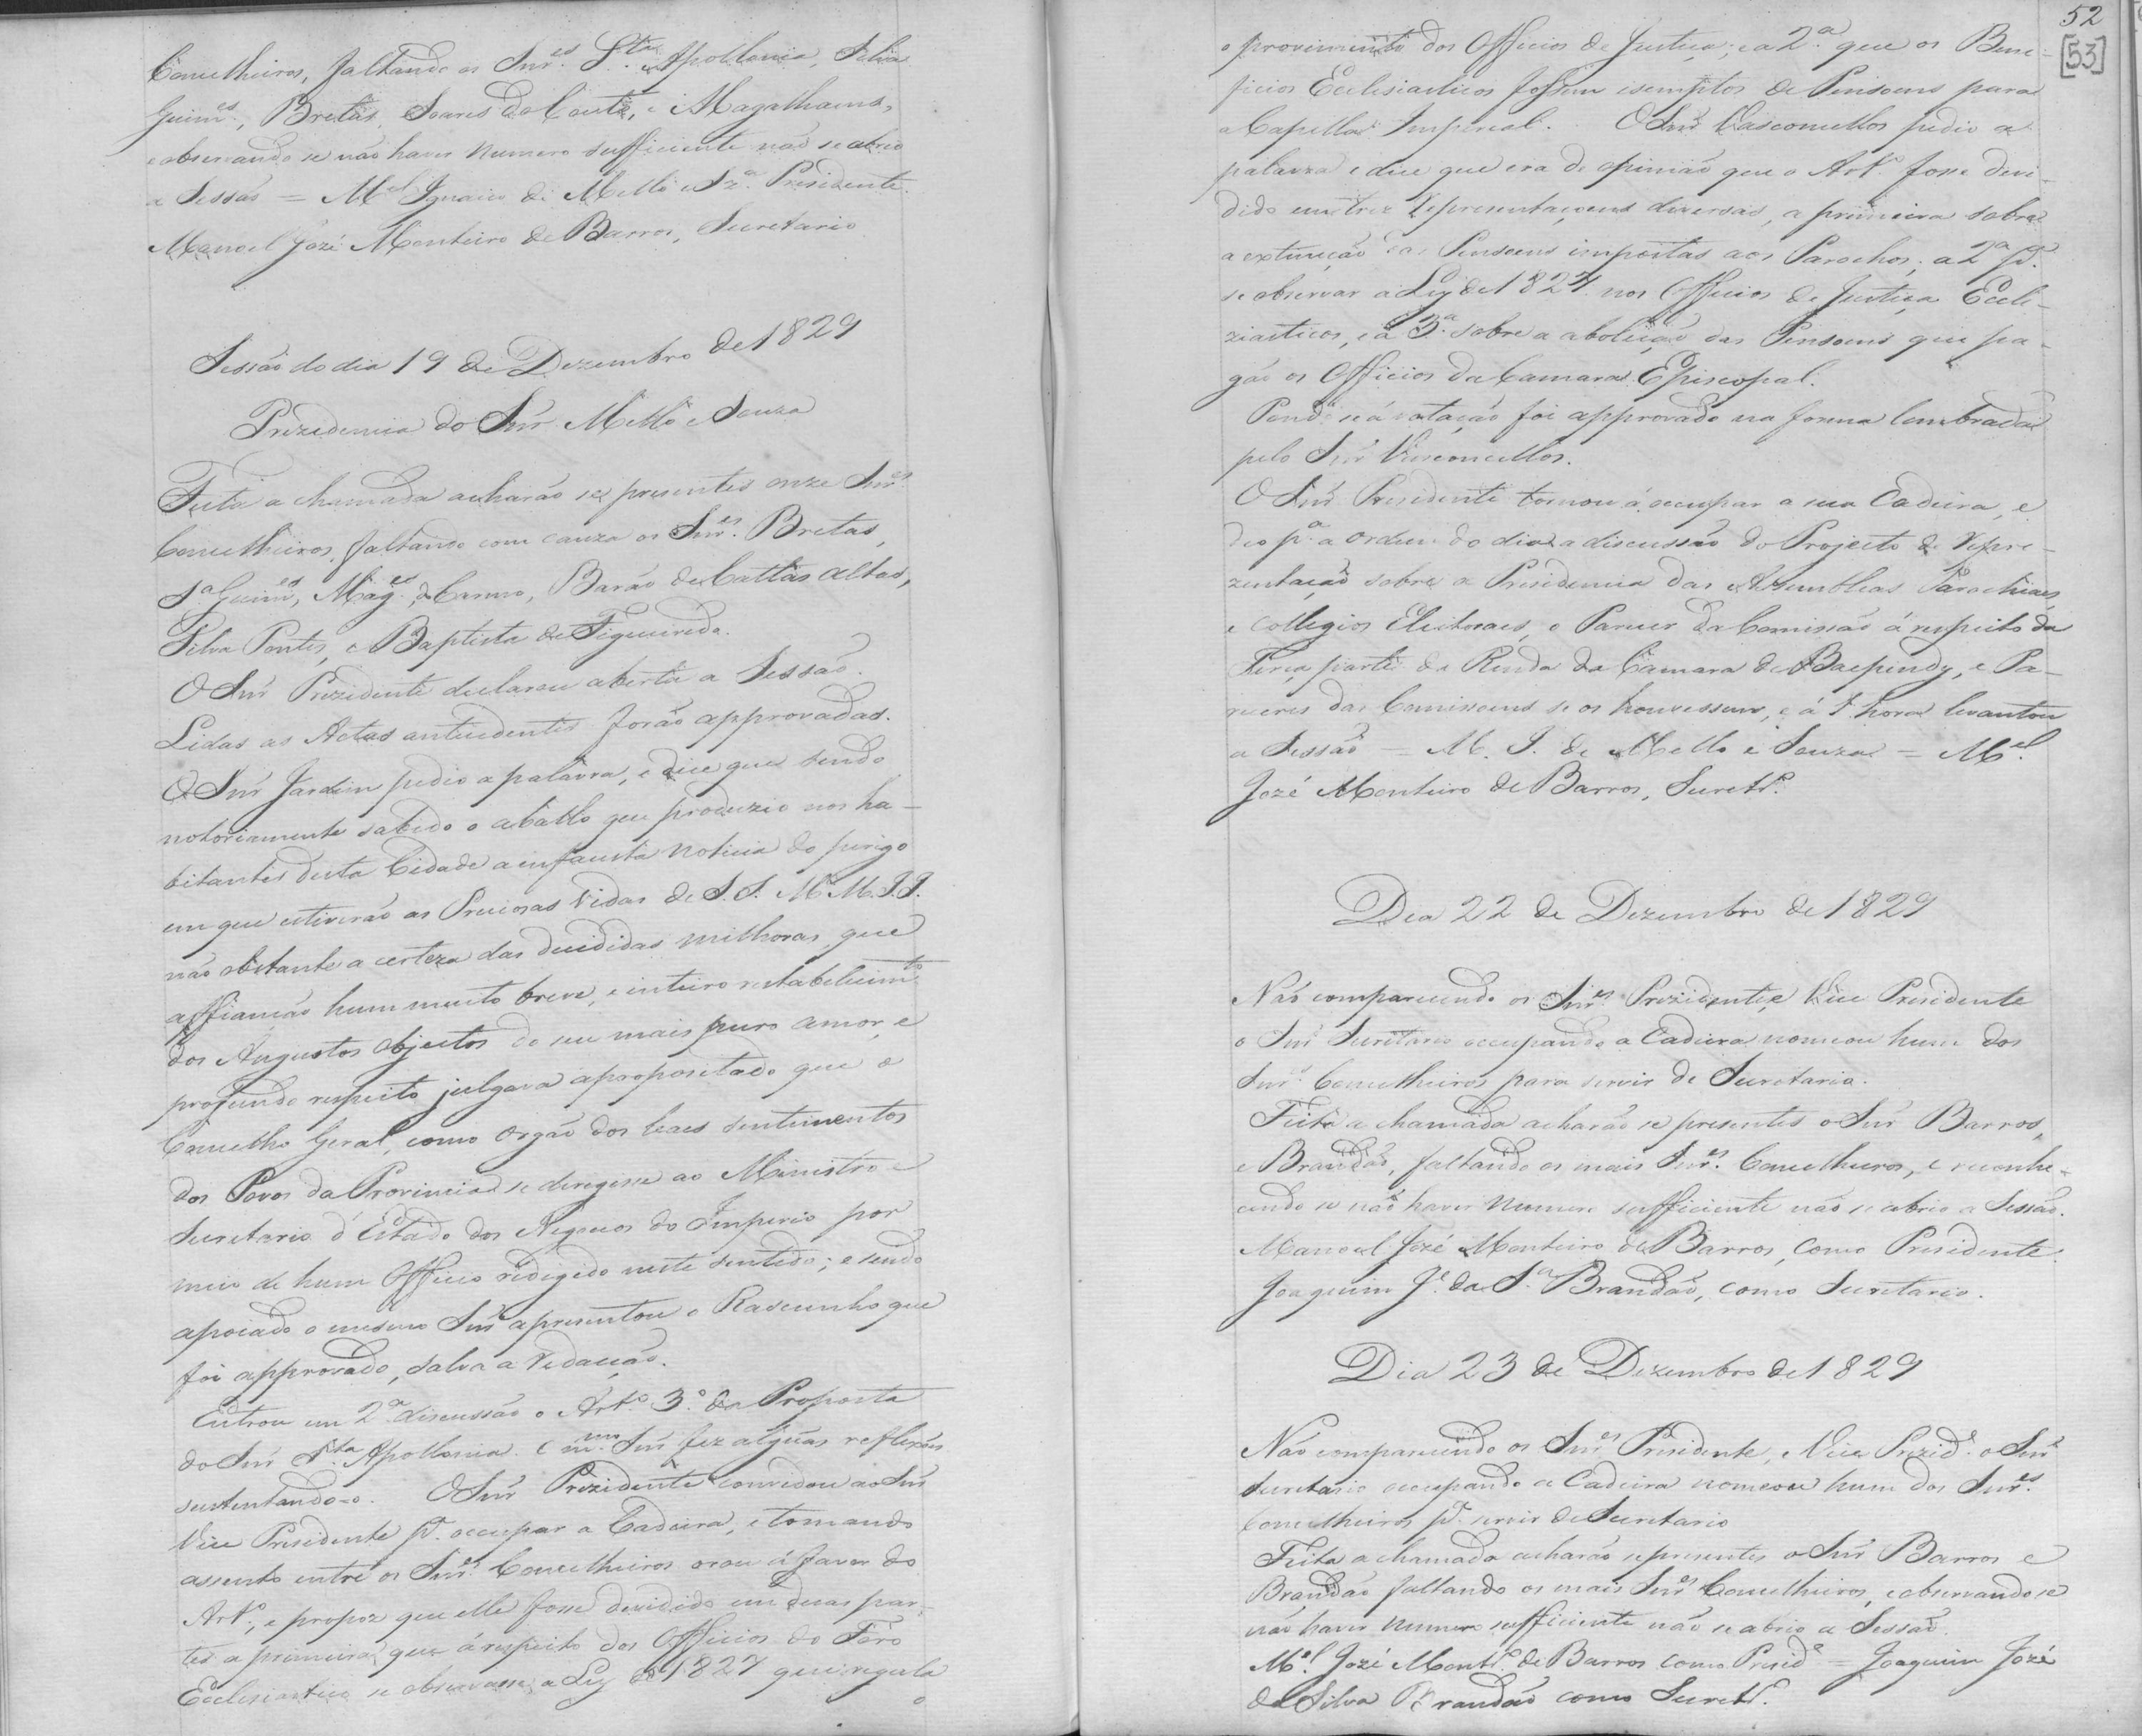 Concelheiros, faltando os Snr.es S.ta Apollonia, Silva
Guim.es, Bretas, Soares do Couto, e Magalhaens,
e observando se não haver numero sufficiente não se abrio
a Sessão = M.el Ignacio de Mello e Sz.a Presidente.
Manoel Jozé Monteiro de Barros, Secretario
Sessão do dia 19 de Dezembro de 1829
Prezidencia do Snr Mello e Souza
Feita a chamada acharão se presentes onze Snr.es
Concelheiros, faltando com cauza os Snr.es Bretas,
S.a Guim.es, Mag.es, do Carmo, Barão de Cattas altas,
Silva Pontes, e Baptista de Figueiredo.
O Snr Prezidente declarou aberta a Sessão.
Lidas as Actas antecedentes forão approvadas.
O Snr Jardim pedio a palavra, e dice que sendo
notoriamente sabido o aballo que produzio nos ha-
bitantes desta Cidade a infausta noticia do perigo
em que estiverão as Preciosas Vidas de S.S. M.M. I.I.
não obstante a certeza das decididas milhoras, que
affiançao hum muito breve, e inteiro restabelecim.to
dos Augustos objectos do seu mais puro amor, e
profundo respeito julgava apropositado que o
Concelho Geral, como orgão dos leaes sentimentos
dos Povos da Provincia se deregesse ao Ministro e
Secretario d'Estado dos Negocios do Imperio por
meio de hum Officio redigido neste sentido; e sendo
apoiado o mesmo Snr apresentou o Rascunho que
foi approvado, salva a redacção.
Entrou em 2.a discussão o Art.o 3.o da Proposta
do Snr S.ta Apollonia. O m.mo Snr fez alguas reflexões
sustentando-o. O Snr Prezidente convidou ao Snr
Vice Presidente p.a occupar a Cadeira, e tomando
assento entre os Snr.es Concelheiros orou á favor do
Art.o, e propoz que elle fosse dividido em duas par-
tes a primeira que á respeito dos Officios do Foro
Ecclesiastico se observasse a Ley de 1827 que regula
o
52
[53]
o provimento dos Officios de Justiça; e a 2.a que os Bene-
ficios Ecclesiasticos fossem isemptos de Pensoens para
a Capella Imperial. O Snr Vasconcellos pedio a
palavra e dice que era de opinião que o Art.o fosse devi-
dido em tres representaçoens diversas, a primeira sobre
a extincção das Pensoens impostas aos Parochos, a 2.a p.a
se observar a Ley de 1827 nos Officios de Justiça Eccle-
ziasticos, e a 3.a sobre a abolição das Pensoens que pa-
gão os Officios da Camara Episcopal.
Pondo se á votação foi approvado na forma lembrada
pelo Snr Vasconcellos.
O Snr Presidente tornou á occupar a sua Cadeira, e
deo p.a a ordem do dia a discussão do Projecto de Repre-
zentação sobre a Presidencia das Assembleas Parochiaes,
e Collegios Eleitoraes, o Parecer da Comissão á respeito da
Terça parte da Renda da Camara de Baependy, e Pa-
receres das Comissoens se os houvessem, e á 1 hora levantou
a Sessão = M. I. de Mello e Souza = M.el
Jozé Monteiro de Barros, Secret.o
Dia 22 de Dezembro de 1829
Não comparecendo os Snr.es Prezidente, e Vice Presidente
o Snr Secretario occupando a Cadeira nomeou hum dos
Snr.es Concelheiros para servir de Secretario.
Feita a chamada acharão se presentes o Snr Barros,
e Brandão, faltando os mais Snr.es Concelheiros, e reconhe-
cendo se não haver numero sufficiente não se abrio a Sessão.
Manoel Jozé Monteiro de Barros, como Presidente.
Joaquim J.e da S.a Brandão, como Secretario.
Dia 23 de Dezembro de 1829
Não comparecendo os Snr.es Prisidente, e Vice Prezid.e o Snr
Secretario occupando a Cadeira nomeou hum dos Snr.es
Concelheiros p.a servir de Secretario
Feita a chamada acharão se presentes o Snr Barros e
Brandão faltando os mais Snr.es Concelheiros, e observando se
não haver numero sufficiente não se abrio a Sessão.
M.el Jozé Mont.o de Barros como Presid.e = Joaquim Jozé
da Silva Brandão como Secret.o